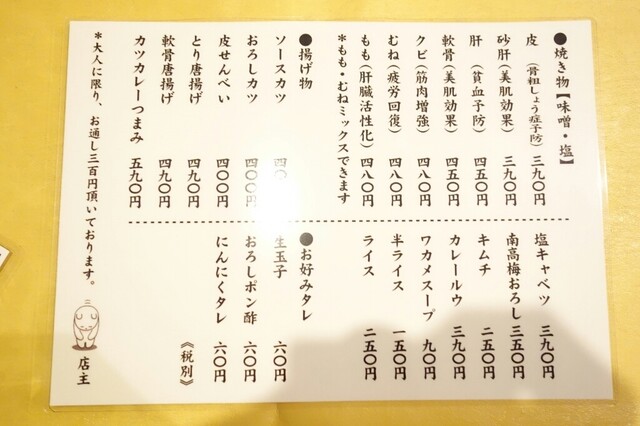 ●焼き物【味噌・塩】
皮（骨粗しょう症予防）三九〇円
砂肝（美肌効果）三九〇円
肝（貧血予防）四五〇円
軟骨（美肌効果）四五〇円
クビ（筋肉増強）四八〇円
むね（疲労回復）四八〇円
もも（肝臓活性化）四八〇円
*もも・むねミックスできます
●揚げ物
ソースカツ 四〇
おろしカツ 四〇〇円
皮せんべい 四〇〇円
とり唐揚げ 四九〇円
軟骨唐揚げ 四九〇円
カツカレーつまみ 五九〇円
*大人に限り、お通し三百円頂いております。
店主
塩キャベツ 三九〇円
南高梅おろし 三五〇円
キムチ 二五〇円
カレールウ 三九〇円
ワカメスープ 九〇円
半ライス 一五〇円
ライス 二五〇円
●お好みタレ
生玉子 六〇円
おろしポン酢 六〇円
にんにくタレ 六〇円
《税別》